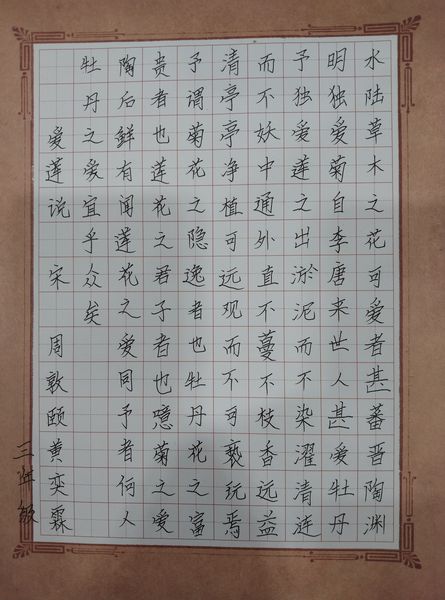 水陆草木之花可爱者甚蕃晋陶渊
明独爱菊自李唐来世人甚爱牡丹
予独爱莲之出淤泥而不染濯清涟
而不妖中通外直不蔓不枝香远益
清亭亭净植可远观而不可亵玩焉
予谓菊花之隐逸者也牡丹花之富
贵者也莲花之君子者也噫菊之爱
陶后鲜有闻莲花之爱同予者何人
牡丹之爱宜乎众矣
爱莲说 宋 周敦颐 黄奕霖
三年级